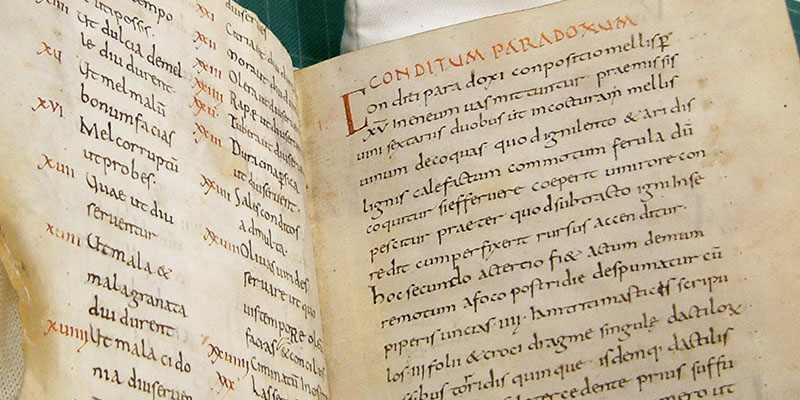 tempo
ut ipossis.
Ut dulcia demel
le diu durent.
XV Ut mel malū
bonum facias
XVI Mel corruptū
ut probes:
XVII Quae ut diu
serventur
XVIII Ut mala &
malagranata
diu durent
XVIIII Ut mala cido
nia diu serven
XXI
XXII mora ut diu
XXIII Olera ut diu
XXIIII Rape ut diu
XXV Tubera ut diu
XXVI Duracina psica
ut diu servent.
XXVII Sales conditos
ad multa.
XXVIII Olivas virides
servare ut quo
vis tempoRe oleū
facias &
XXVIIII Cuminatū In
XXX Lasser
CONDITUM PARADOXUM
Conditi paradoxi conpositio mellis p
XV In eneum vas mittuntur praemissis
vini sextariis duobus ut in coctura mellis
vinum decoquas quod igni lento & aridis
lignis calefactum commotum ferula dū
coquitur si effervere coeperit vini rore con
pescitur praeter quod subtracto igni In se
redit cum perfrixerit rursus accenditur.
hoc secundo ac tertio fi& ac tum demum
remotum a foco postridie despumatur cū
piperis uncias IIII. Iam triti masticis scripu
los III folii & croci dragme singulę dactilorum
ossibus torridis quinque isdemq: dactilis
intercedente prius suffu